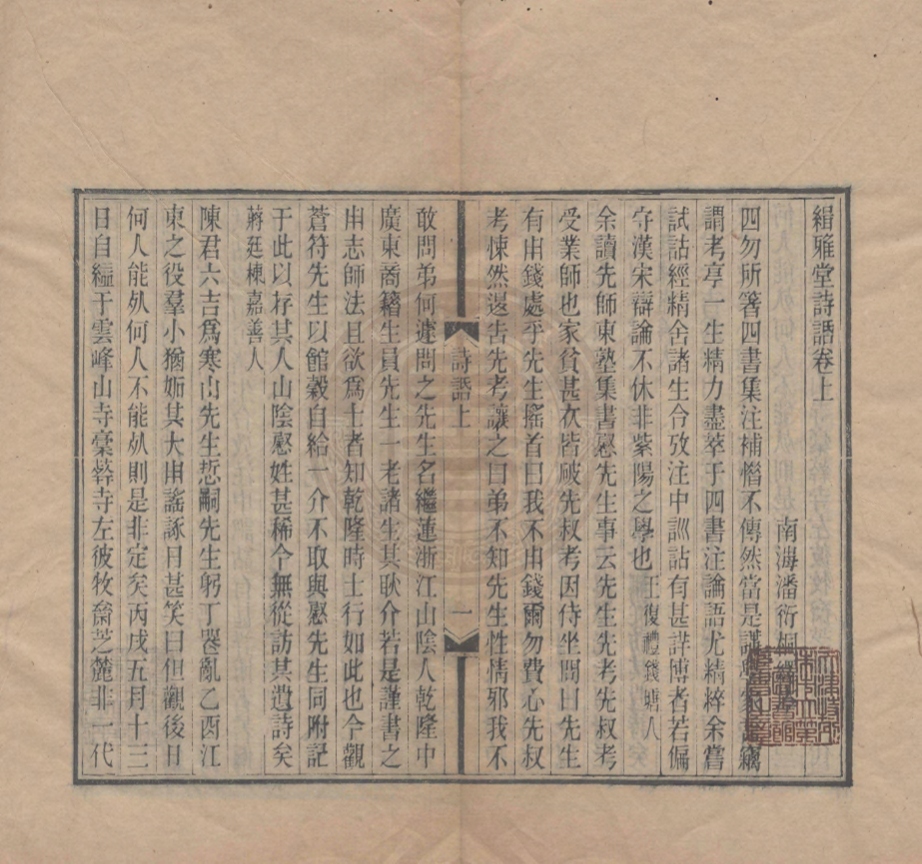 緝雅堂詩話卷上
南海潘衍桐
四勿所箸四書集注補惜不傳然當是講學家言竊
謂考亭一生精力盡萃于四書注論語尤精粹余嘗
試詁經精舍諸生令攷注中訓詁有甚詳博者若偏
守漢宋辯論不休非紫陽之學也王復禮錢塘人
余讀先師東塾集書愿先生事云先生先考先叔考
受業師也家貧甚衣皆破先叔考因侍坐問曰先生
有用錢處乎先生搖首曰我不用錢爾勿費心先叔
考悚然退告先考先考讓之曰弟不知先生性情邪我不
敢問弟何遽問之先生名繼蓮浙江山陰人乾隆中
廣東商籍生員先生一老諸生其耿介若是謹書之
用志師法且欲爲士者知乾隆時士行如此也今觀
蒼符先生以館穀自給一介不取與愿先生同附記
于此以存其人山陰愿姓甚稀今無從訪其遺詩矣
蔣廷棟嘉善人
陳君六吉爲寒山先生哲嗣先生躬丁喪亂乙酉江
東之役羣小猶妬其大用謠諑日甚笑曰但觀後日
何人能死何人不能死則是非定矣丙戌五月十三
日自縊于雲峰山寺藁葬寺左彼牧齋芝麓非一代
詩話上
一